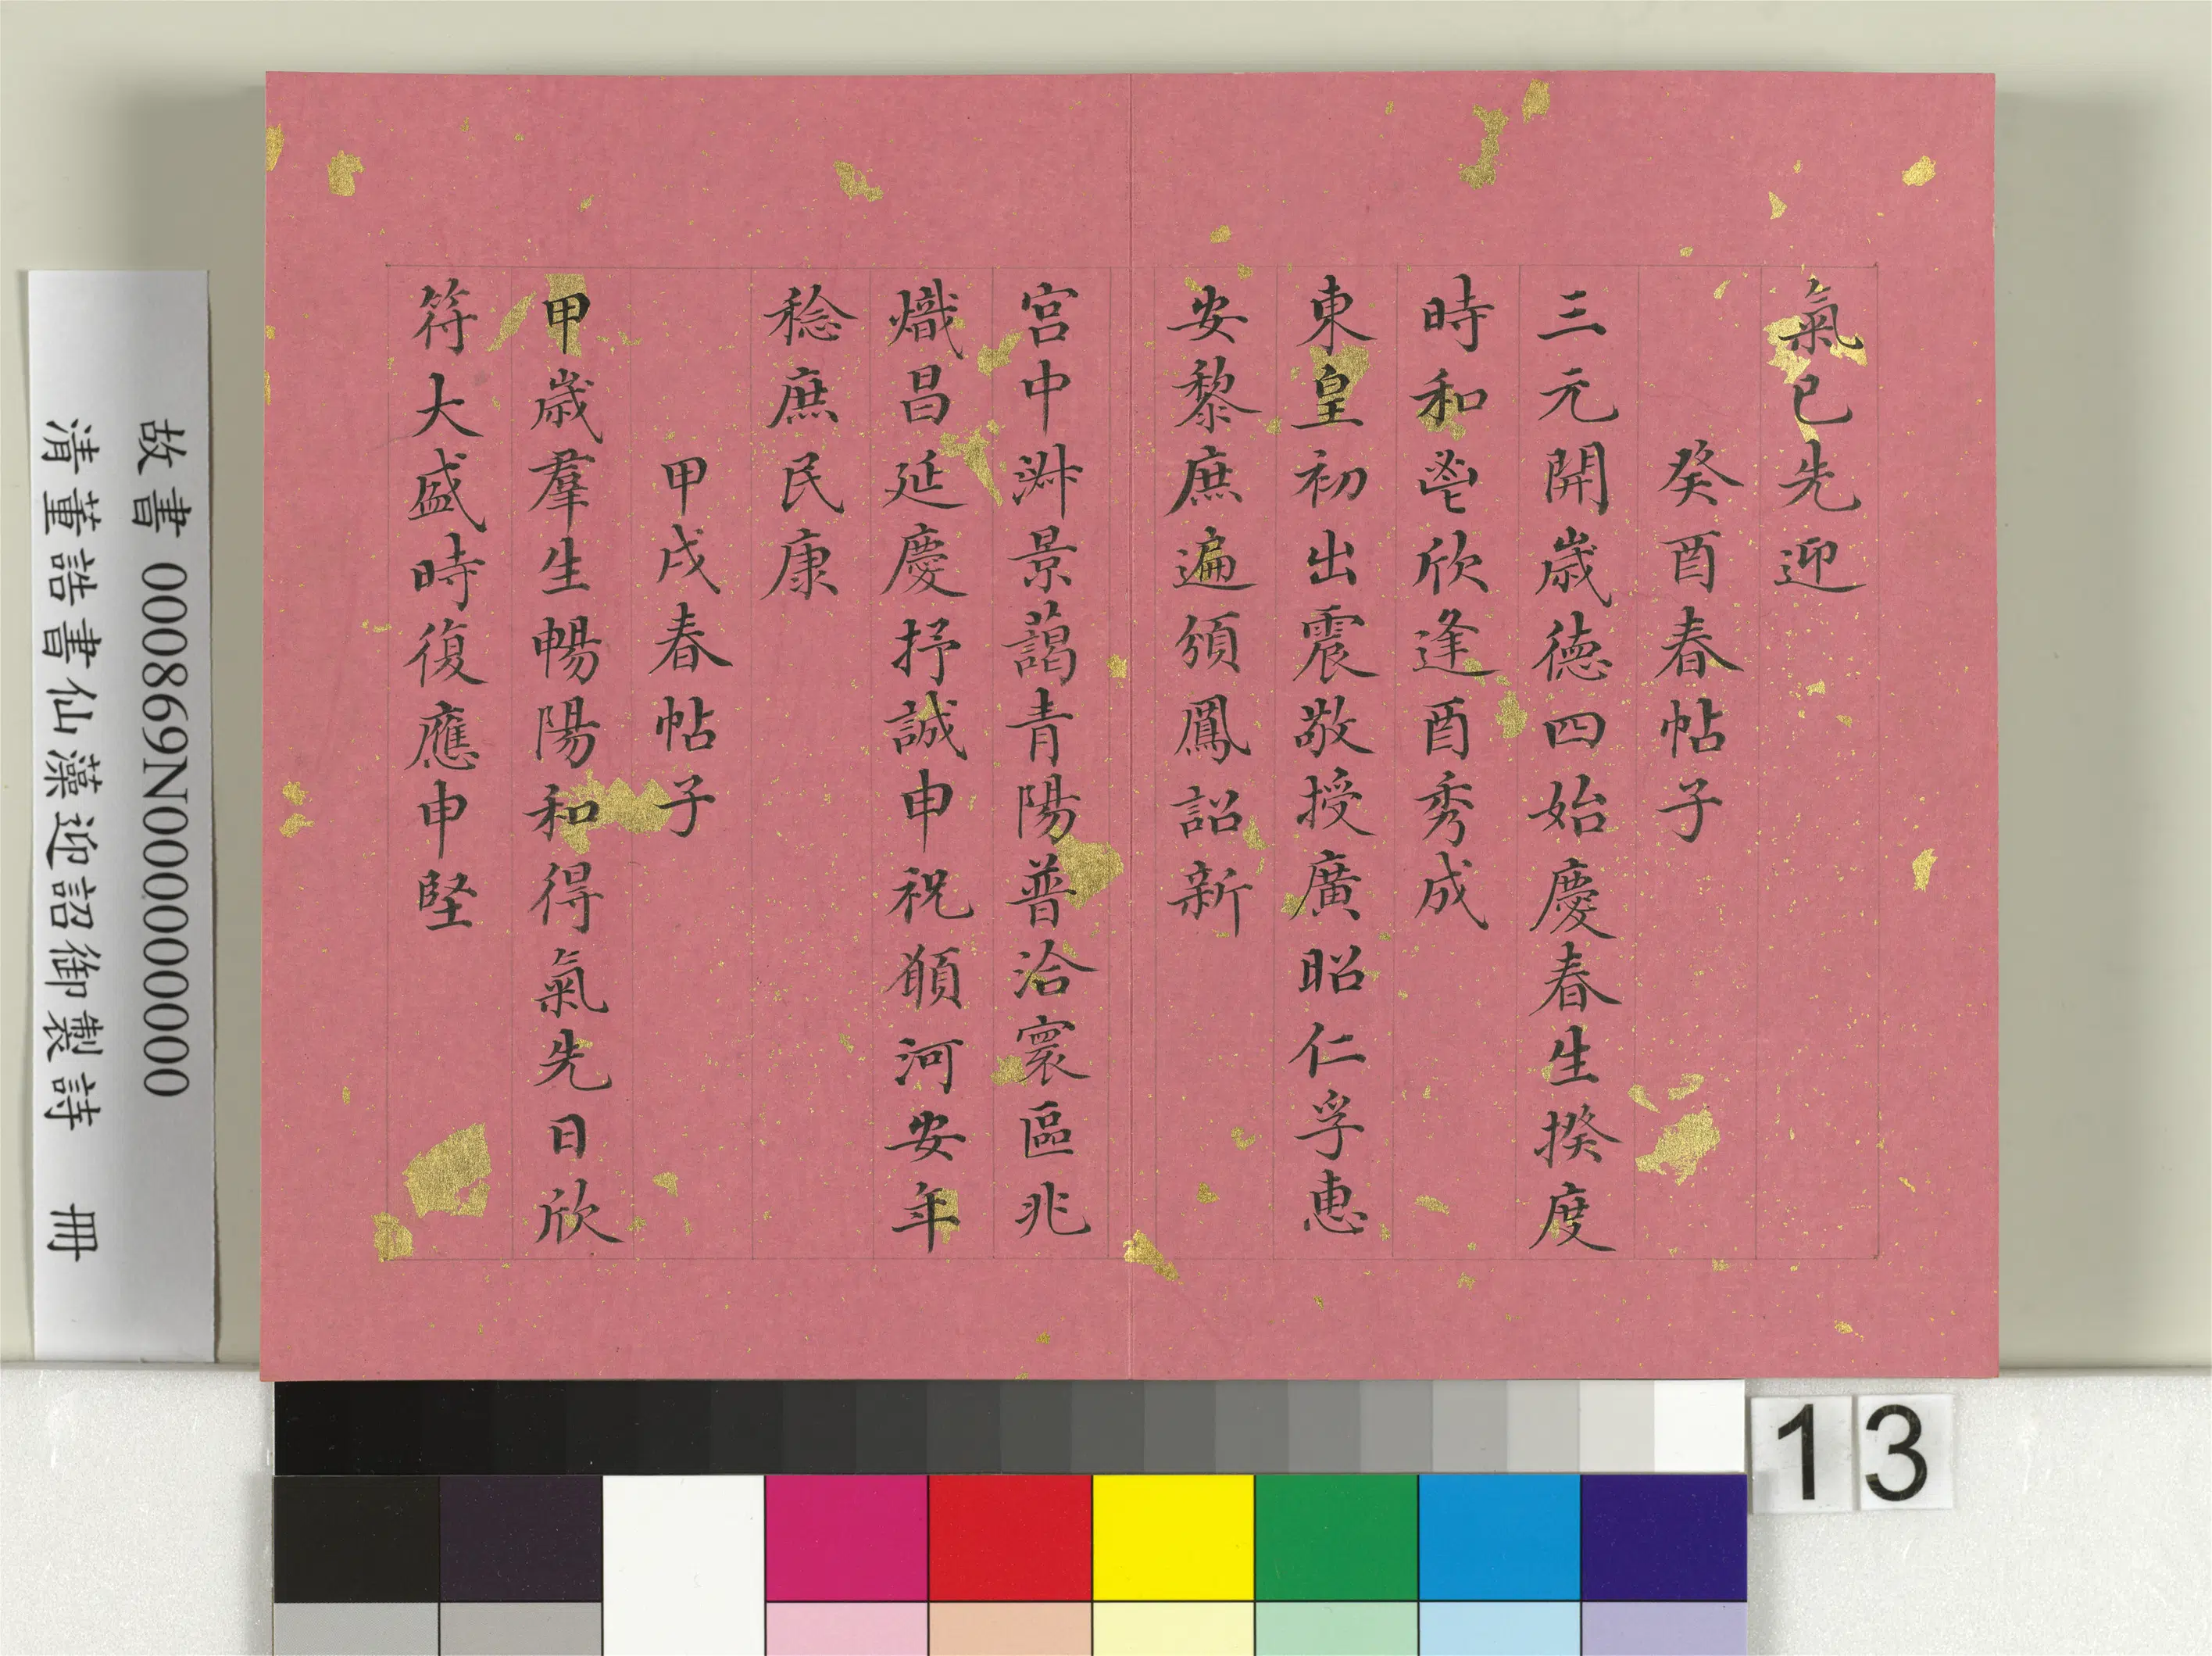 氣已先迎
癸酉春帖子
三元開歲德四始慶春生揆度
時和鬯欣逢酉秀成
東皇初出震敬授廣昭仁孚惠
安黎庶遍頒鳳詔新
宮中淑景藹青陽普洽寰區兆
熾昌延慶抒誠申祝願河安年
稔庶民康
甲戌春帖子
甲歲羣生暢陽和得氣先日欣
符大盛時復應申堅
故書 000869N000000000
清董誥書仙藻迎詔御製詩 冊
13